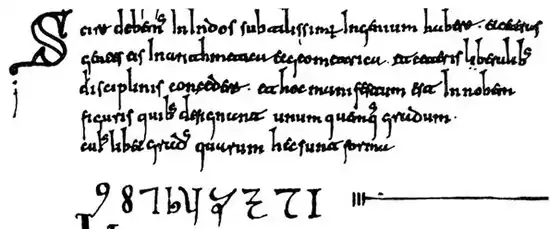 Scire debemꝰs In Indos subtilissimū Ingenium habere. et ceteras
gentes eis In arithmetica et geometrica. et ceteris liberalibꝰs
disciplinis concedere. et hoc manifestum est In nobem
figuris quibꝰs designant unum quemqꝰs gradum.
cuiꝰslibet gradꝰs quarum hec sunt forma
9 8 7 6 5 4 3 2 1